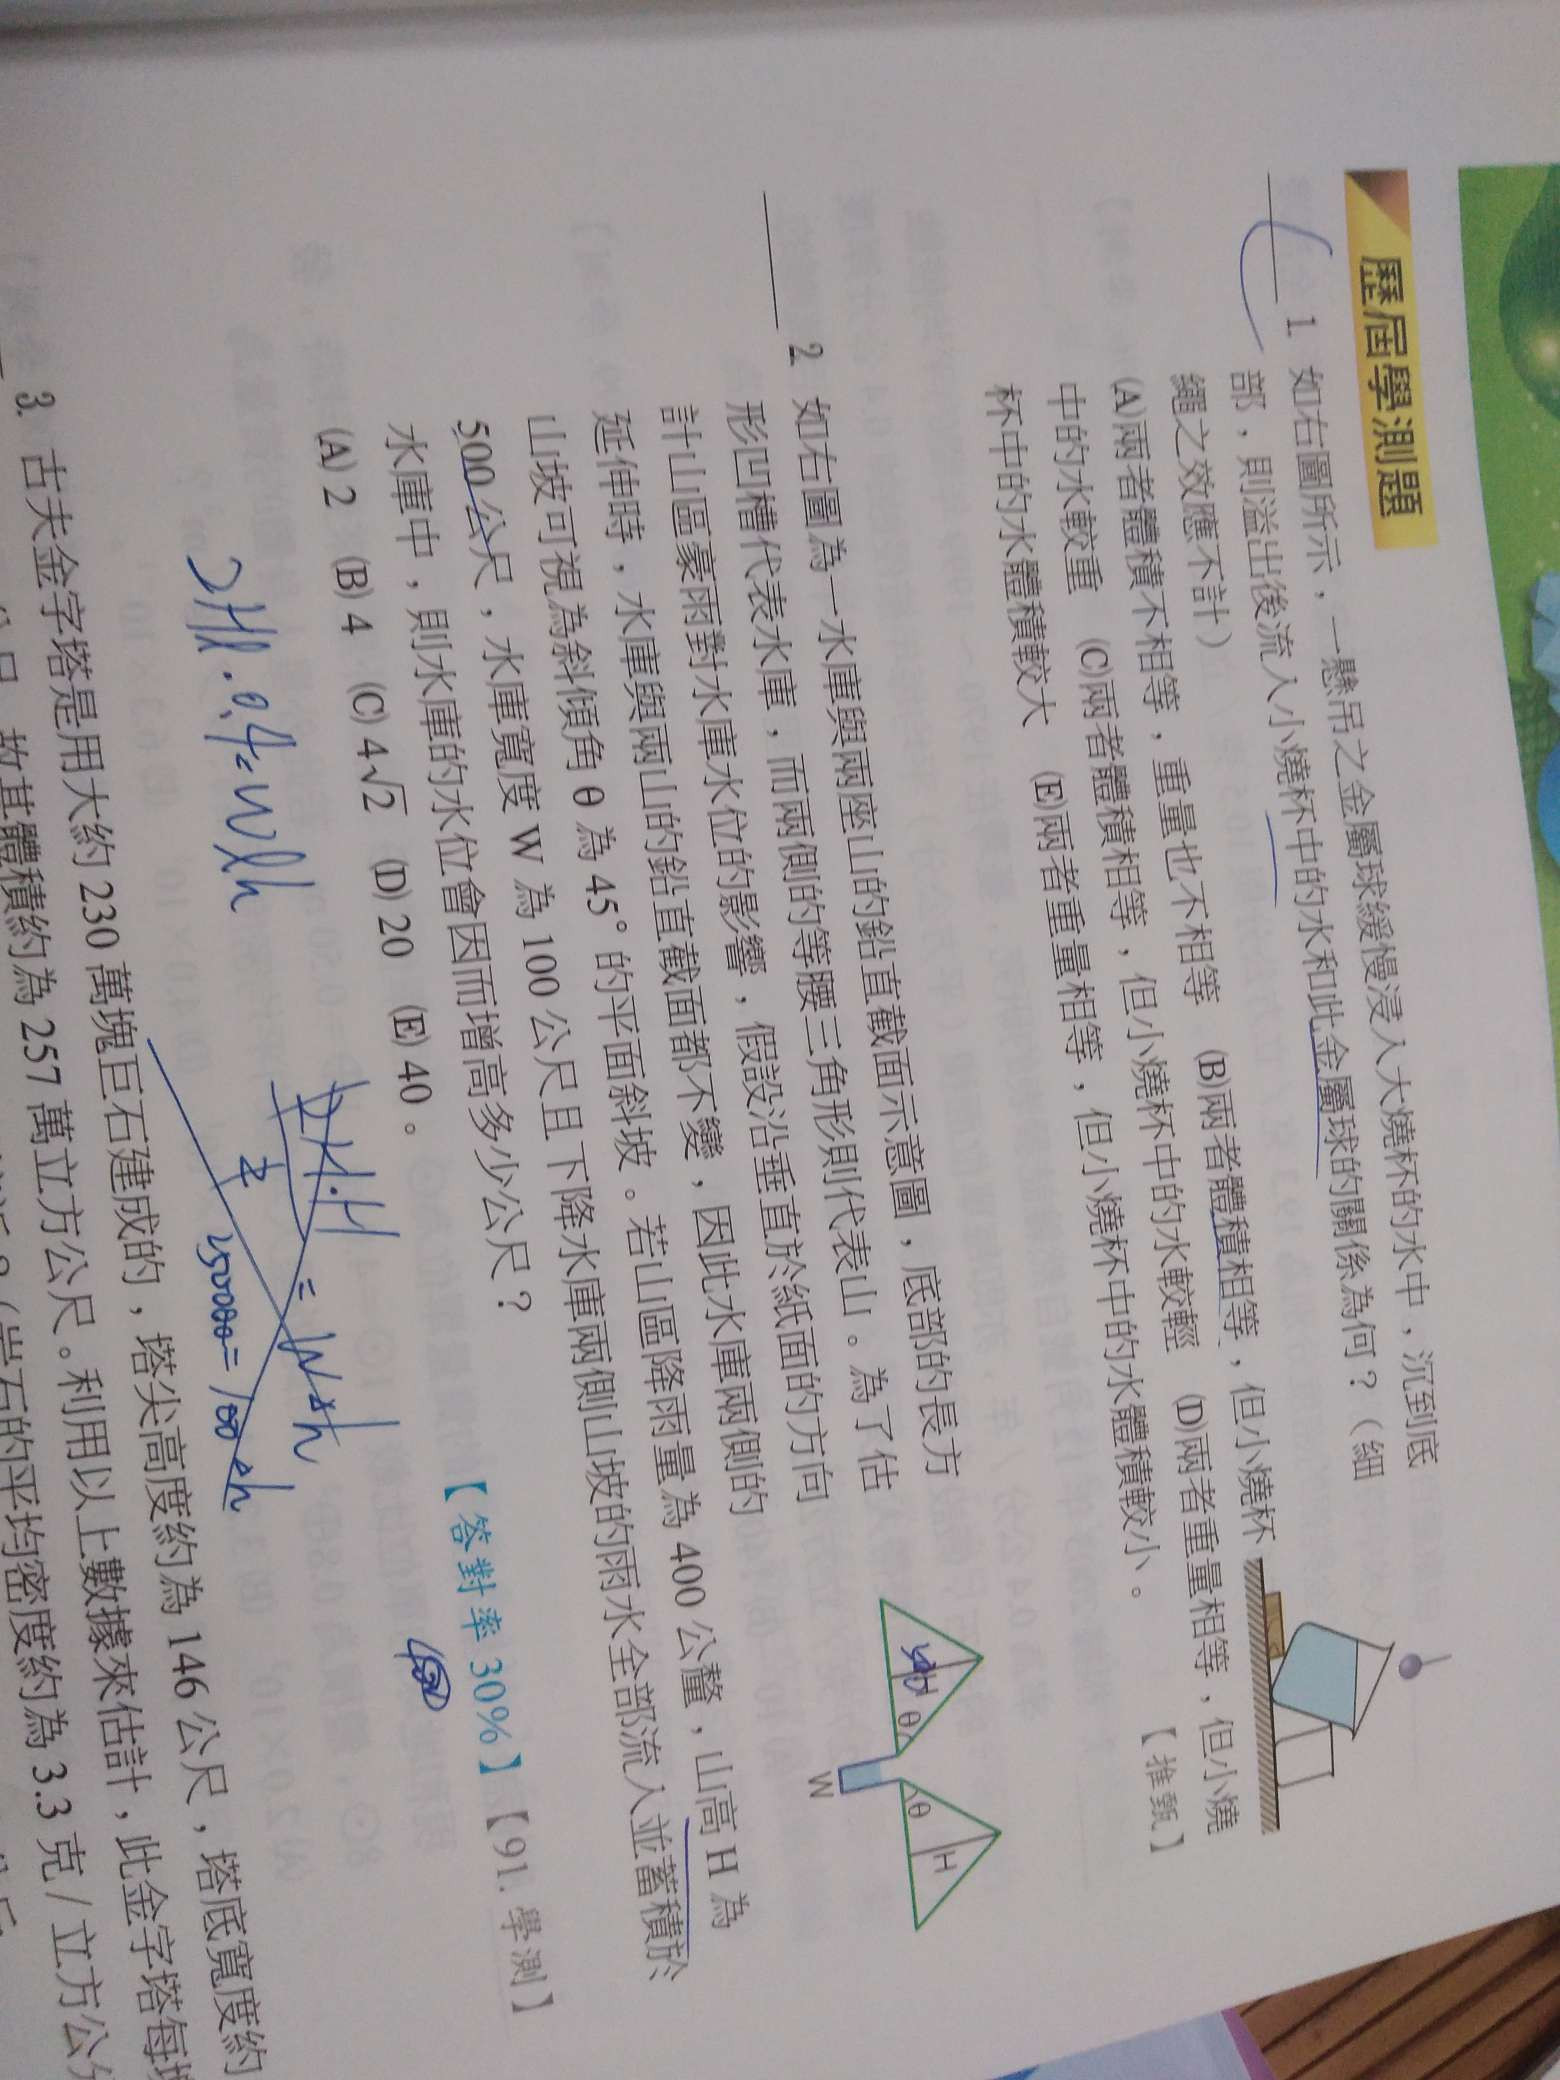 歷屆學測題
1. 如右圖所示，一懸吊之金屬球緩慢浸入大燒杯的水中，沉到底
部，則溢出後流入小燒杯中的水和此金屬球的關係為何？（細
繩之效應不計）
(A)兩者體積不相等，重量也不相等 (B)兩者體積相等，但小燒杯
中的水較重 (C)兩者體積相等，但小燒杯中的水較輕 (D)兩者重量相等，但小燒
杯中的水體積較大 (E)兩者重量相等，但小燒杯中的水體積較小。
【推甄】
2. 如右圖為一水庫與兩座山的鉛直截面示意圖，底部的長方
形凹槽代表水庫，而兩側的等腰三角形則代表山。為了估
計山區豪雨對水庫水位的影響，假設沿垂直於紙面的方向
延伸時，水庫與兩山的鉛直截面都不變，因此水庫兩側的
山坡可視為斜傾角 θ 為 45° 的平面斜坡。若山區降雨量為 400 公釐，山高 H 為
500 公尺，水庫寬度 W 為 100 公尺且下降水庫兩側山坡的雨水全部流入並蓄積於
水庫中，則水庫的水位會因而增高多少公尺？
(A) 2 (B) 4 (C) 4√2 (D) 20 (E) 40。
【答對率 30%】【91. 學測】
H
θ
θ
H
W
2Hl·0.4=Wlh
250000=100
3. 古夫金字塔是用大約 230 萬塊巨石建成的，塔尖高度約為 146 公尺，塔底寬度約
故其體積約為 257 萬立方公尺。利用以上數據來估計，此金字塔每塊
（岩石的平均密度約為 3.3 克／立方公分